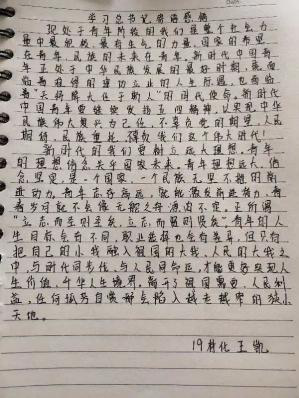 学习总书记寄语感悟
现处于青年阶段的我们是整个社会力
量中最积极、最有生气的力量，国家的希望
在青年，民族的未来在青年。新时代中国青
年正处于中华民族发展的最好时期，既面
临着难得的建功立业的人生际遇，也面临
着“天将降大任于斯人”的时代使命。新时代
中国青年要继续发扬五四精神，以实现中华
民族伟大复兴为己任，不辜负党的期望、人民
期待、民族重托，不辜负我们这个伟大时代！
新时代的我们要树立远大理想。青年
的理想信念关乎国家未来。青年理想远大、信
念坚定，是一个国家、一个民族无坚不摧的前
进动力。青年志存高远，就能激发奋进潜力，青
春岁月就不会像无舵之舟漂泊不定。正所谓
“立志而圣则圣矣，立志而贤则贤矣”青年的人
生目标会有不同，职业选择也会有差异，但只有
把自己的小我融入祖国的大我、人民的大我之
中，与时代同步伐、与人民共命运，才能更好实现人
生价值、升华人生境界。离开了祖国需要、人民利
益，任何孤芳自赏都会陷入越走越窄的狭小
天地。
19林化 王凯